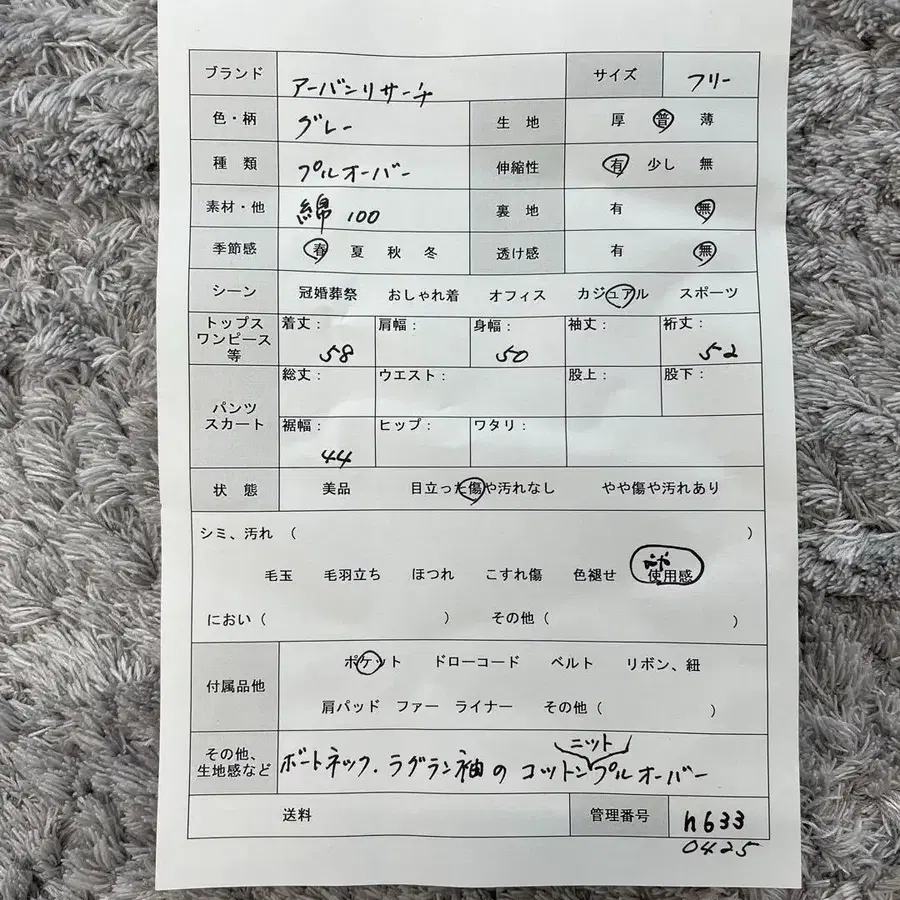 ブランド アーバンリサーチ サイズ フリー
色・柄 グレー 生地 厚 普 薄
種類 プルオーバー 伸縮性 有 少し 無
素材・他 綿 100 裏地 有 無
季節感 春 夏 秋 冬 透け感 有 無
シーン 冠婚葬祭 おしゃれ着 オフィス カジュアル スポーツ
トップス ワンピース 等 着丈: 58 肩幅: 身幅: 50 袖丈: 裄丈: 52
パンツ スカート 総丈: ウエスト: 股上: 股下:
裾幅: 44 ヒップ: ワタリ:
状態 美品 目立った傷や汚れなし やや傷や汚れあり
シミ、汚れ ( )
毛玉 毛羽立ち ほつれ こすれ傷 色褪せ 使用感
におい ( ) その他 ( )
付属品他 ポケット ドローコード ベルト リボン、紐
肩パッド ファー ライナー その他 ( )
その他、生地感など ボートネック.ラグラン袖の コットンニットプルオーバー
送料 管理番号 h633
0425